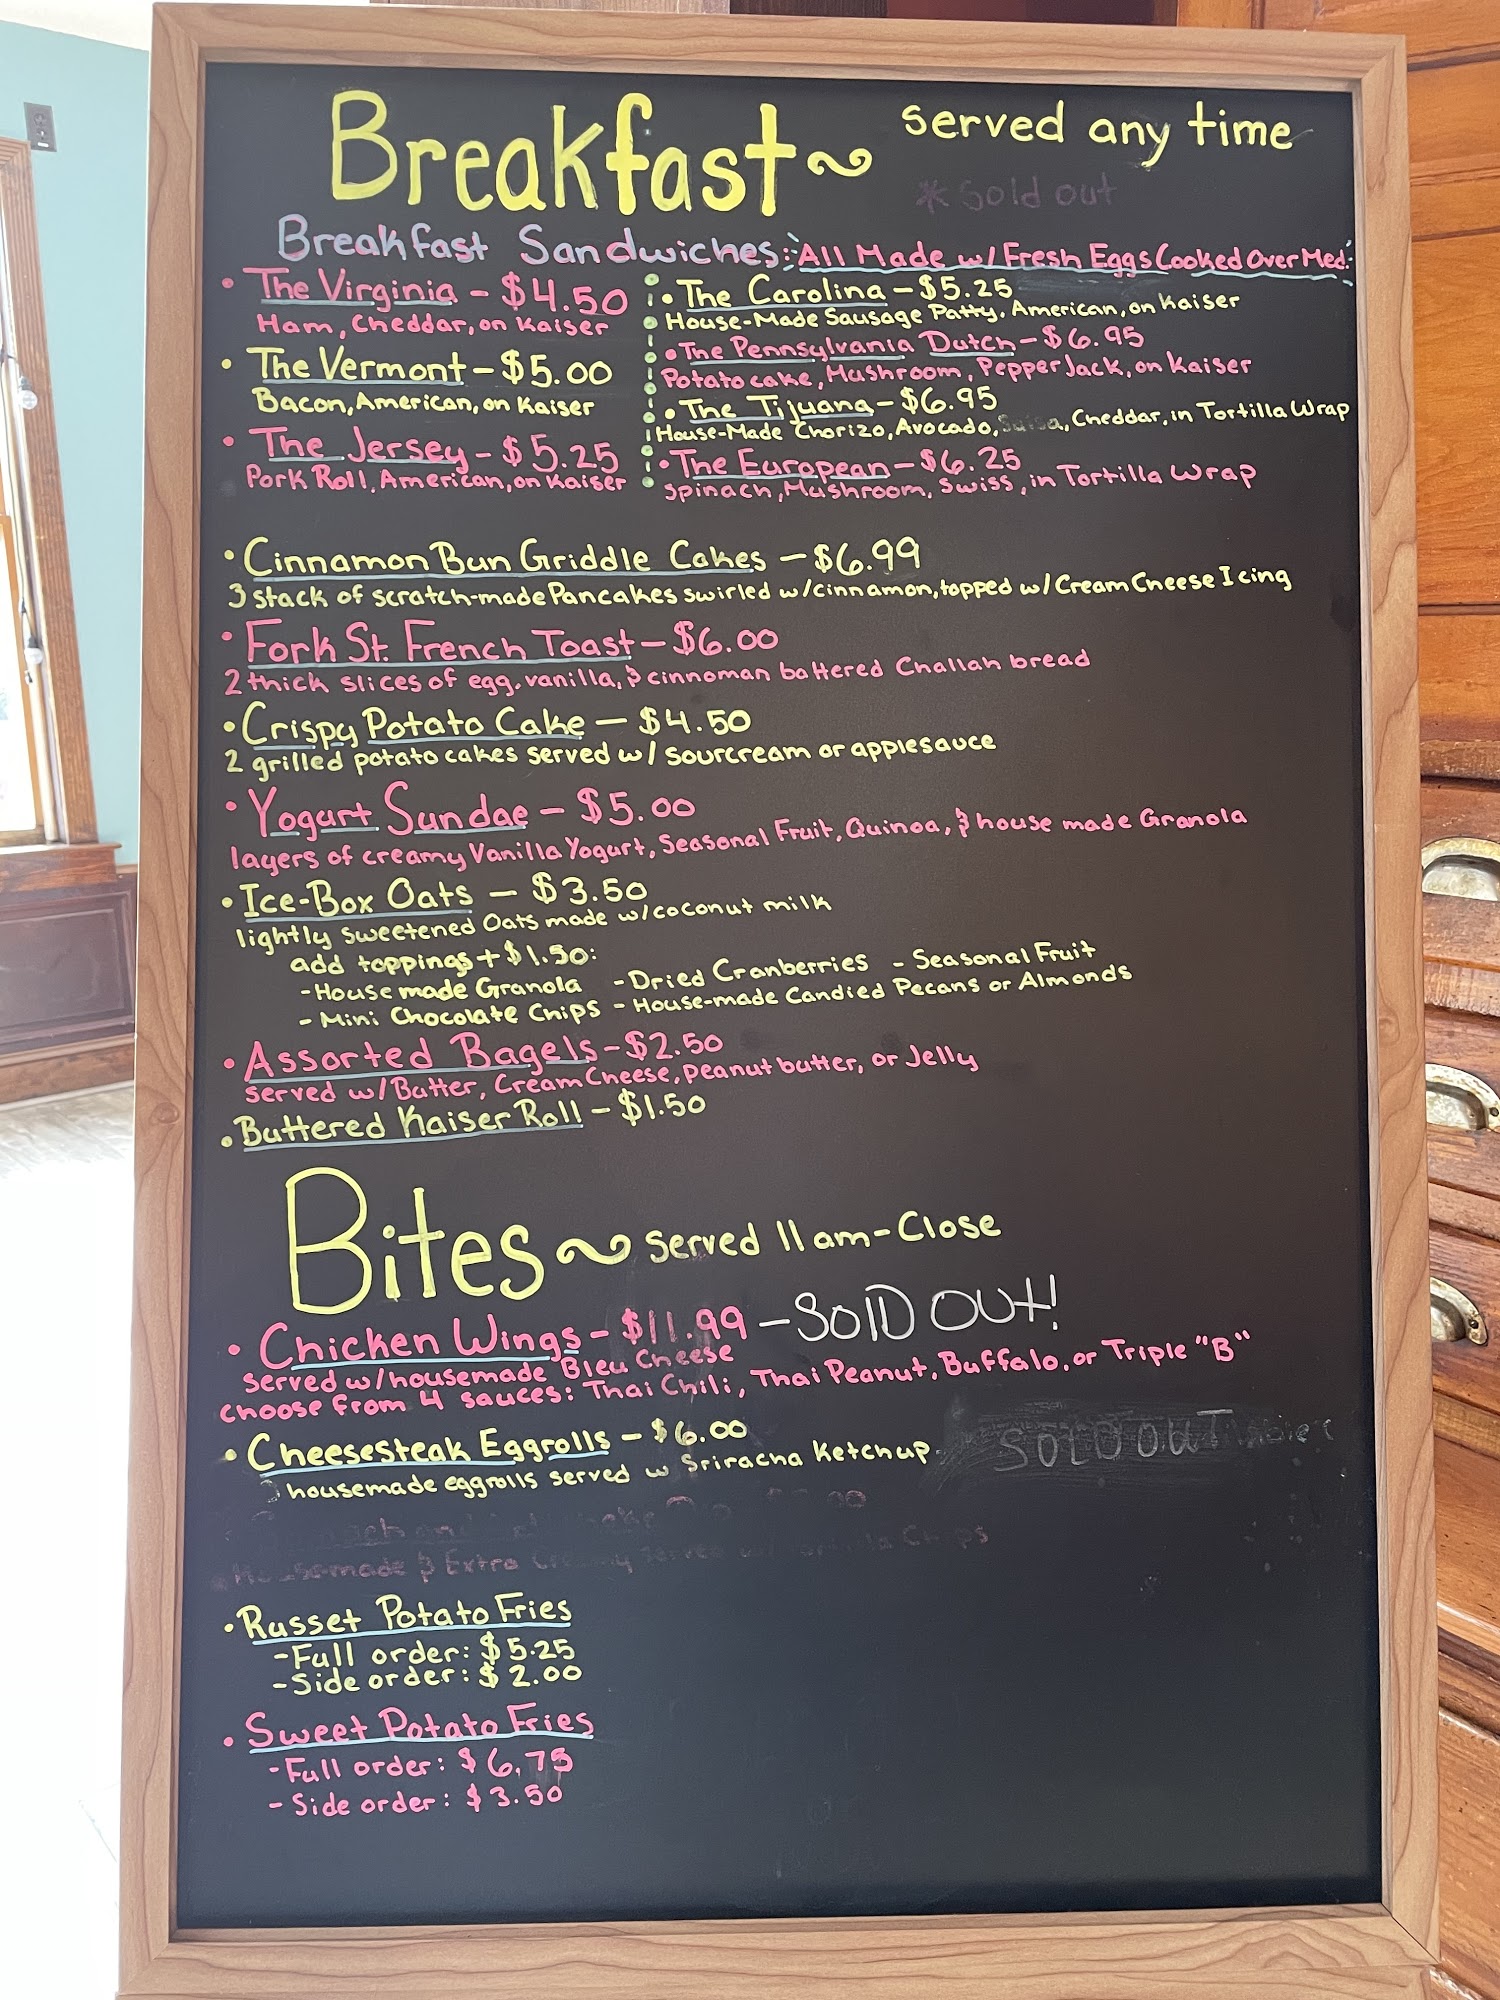 Breakfast~ served any time
*Sold out
Breakfast Sandwiches: All Made w/ Fresh Eggs Cooked Over Med!
• The Virginia - $4.50
Ham, Cheddar, on Kaiser
• The Vermont - $5.00
Bacon, American, on Kaiser
• The Jersey - $5.25
Pork Roll, American, on Kaiser
• The Carolina - $5.25
House-Made Sausage Patty, American, on Kaiser
• The Pennsylvania Dutch - $6.95
Potato cake, Mushroom, Pepper Jack, on Kaiser
• The Tijuana - $6.95
House-Made Chorizo, Avocado, Salsa, Cheddar, in Tortilla Wrap
• The European - $6.25
Spinach, Mushroom, Swiss, in Tortilla Wrap
• Cinnamon Bun Griddle Cakes - $6.99
3 stack of scratch-made Pancakes swirled w/cinnamon, topped w/ Cream Cheese Icing
• Fork St. French Toast - $6.00
2 thick slices of egg, vanilla, & cinnoman battered Challah bread
• Crispy Potato Cake - $4.50
2 grilled potato cakes served w/ sourcream or applesauce
• Yogurt Sundae - $5.00
layers of creamy Vanilla Yogurt, Seasonal Fruit, Quinoa, & house made Granola
• Ice-Box Oats - $3.50
lightly sweetened Oats made w/coconut milk
add toppings + $1.50:
- House made Granola - Dried Cranberries - Seasonal Fruit
- Mini Chocolate Chips - House-made Candied Pecans or Almonds
• Assorted Bagels - $2.50
served w/ Butter, Cream Cheese, peanut butter, or Jelly
• Buttered Kaiser Roll - $1.50
Bites~ served 11am-Close
• Chicken Wings - $11.99 - SOLD OUT!
served w/housemade Bleu Cheese
choose from 4 sauces: Thai Chili, Thai Peanut, Buffalo, or Triple "B"
• Cheesesteak Eggrolls - $6.00
housemade eggrolls served w Sriracha Ketchup. SOLD OUT
Housemade & Extra Creamy served w/ Tortilla Chips
• Russet Potato Fries
- Full order: $5.25
- Side order: $2.00
• Sweet Potato Fries
- Full order: $6.75
- Side order: $3.50